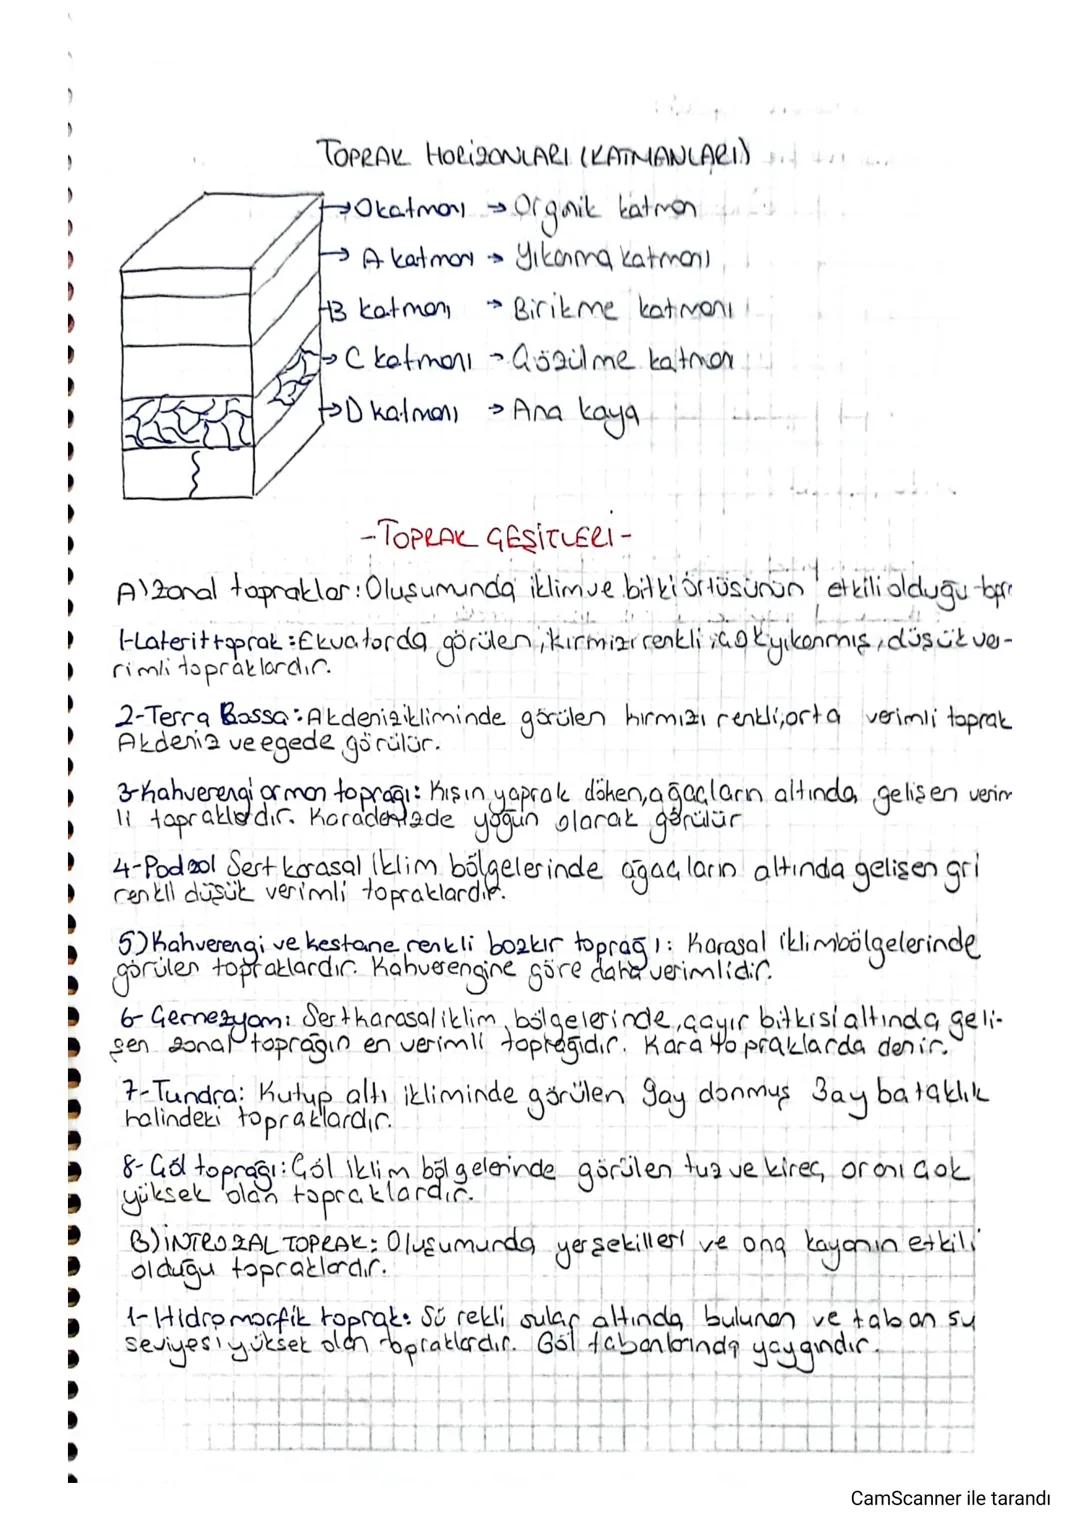 TOPRAK HORİZONLARI (KATMANLARI)
O katmanı → Organik katman
A katmanı → Yıkanma katmanı
B katmanı → Birikme katmanı
C katmanı → Çözülme katman
D katmanı → Ana kaya
-TOPRAK ÇEŞİTLERİ-
A) Zonal topraklar: Oluşumunda iklim ve bitki örtüsünün etkili olduğu topr
1-Laterit toprak: Ekvatorda görülen, kırmızı renkli, çok yıkanmış, düşük ve-
rimli topraklardır.
2-Terra Rossa: Akdeniz ikliminde görülen kırmızı renkli, orta verimli toprak
Akdeniz ve egede görülür.
3-Kahverengi orman toprağı: Kışın yaprak döken, ağaçların altında gelişen verim
li topraklardır. Karadenizde yoğun olarak görülür
4-Podzol Sert karasal iklim bölgelerinde ağaçların altında gelişen gri
renkli düşük verimli topraklardır.
5) Kahverengi ve kestane renkli bozkır toprağı: Karasal iklim bölgelerinde
görülen topraklardır. Kahverengine göre daha verimlidir.
6- Çernezyom: Sert karasal iklim bölgelerinde, çayır bitkisi altında geli-
şen zonal toprağın en verimli toprağıdır. Kara topraklarda denir.
7-Tundra: Kutup altı ikliminde görülen 9ay donmuş 3ay bataklık
halindeki topraklardır.
8-Çöl toprağı: Çöl iklim bölgelerinde görülen tuz ve kireç oranı çok
yüksek olan topraklardır.
B) İNTROZAL TOPRAK: Oluşumunda yerşekilleri ve ana kayanın etkili
olduğu topraklardır.
1-Hidromorfik toprak: Sü rekli sular altında bulunan ve taban su
seviyesi yüksek olan topraklardır. Göl tabanlarında yaygındır.
CamScanner ile tarandı